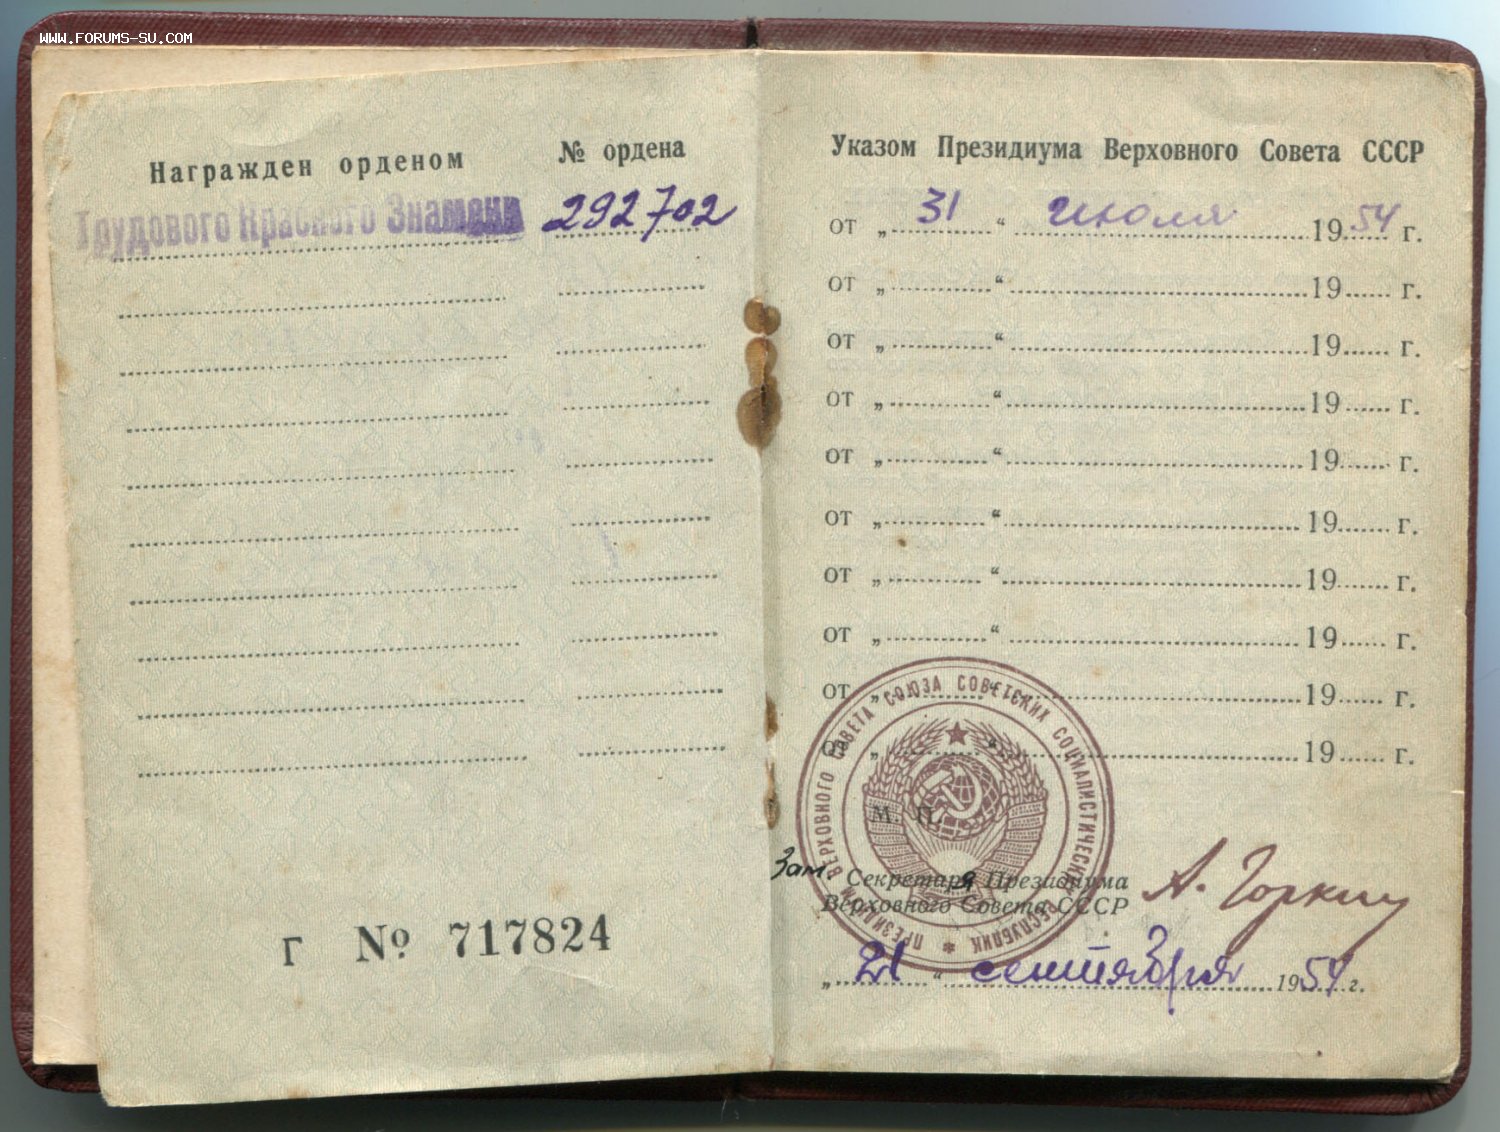 WWW.FORUMS-SU.COM
Награжден орденом № ордена
Трудового Красного Знамени 292702
Г № 717824
Указом Президиума Верховного Совета СССР
от „ 31 “ июля 1954 г.
от „ “ 19 г.
от „ “ 19 г.
от „ “ 19 г.
от „ “ 19 г.
от „ “ 19 г.
от „ “ 19 г.
от „ “ 19 г.
от „ “ 19 г.
от „ “ 19 г.
ПРЕЗИДИУМ ВЕРХОВНОГО СОВЕТА СОЮЗА СОВЕТСКИХ СОЦИАЛИСТИЧЕСКИХ РЕСПУБЛИК
М. П.
Зам. Секретаря Президиума
Верховного Совета СССР А. Горкин
„ 21 “ сентября 1954 г.